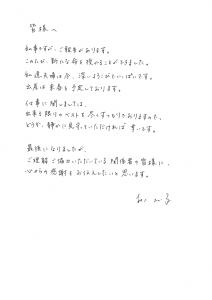 皆様へ
私事ですが、ご報告があります。
このたび、新たな命を授かることができました。
私達夫婦は今、深いよろこびでいっぱいです。
出産は来春を予定しております。
仕事に関しましては、
出来る限りのベストを尽くすつもりでおりますので、
どうか、静かに見守っていただければ幸いです。
最後になりましたが、
ご理解ご協力いただいている関係者の皆様に、
心からの感謝をお伝えしたいと思います。